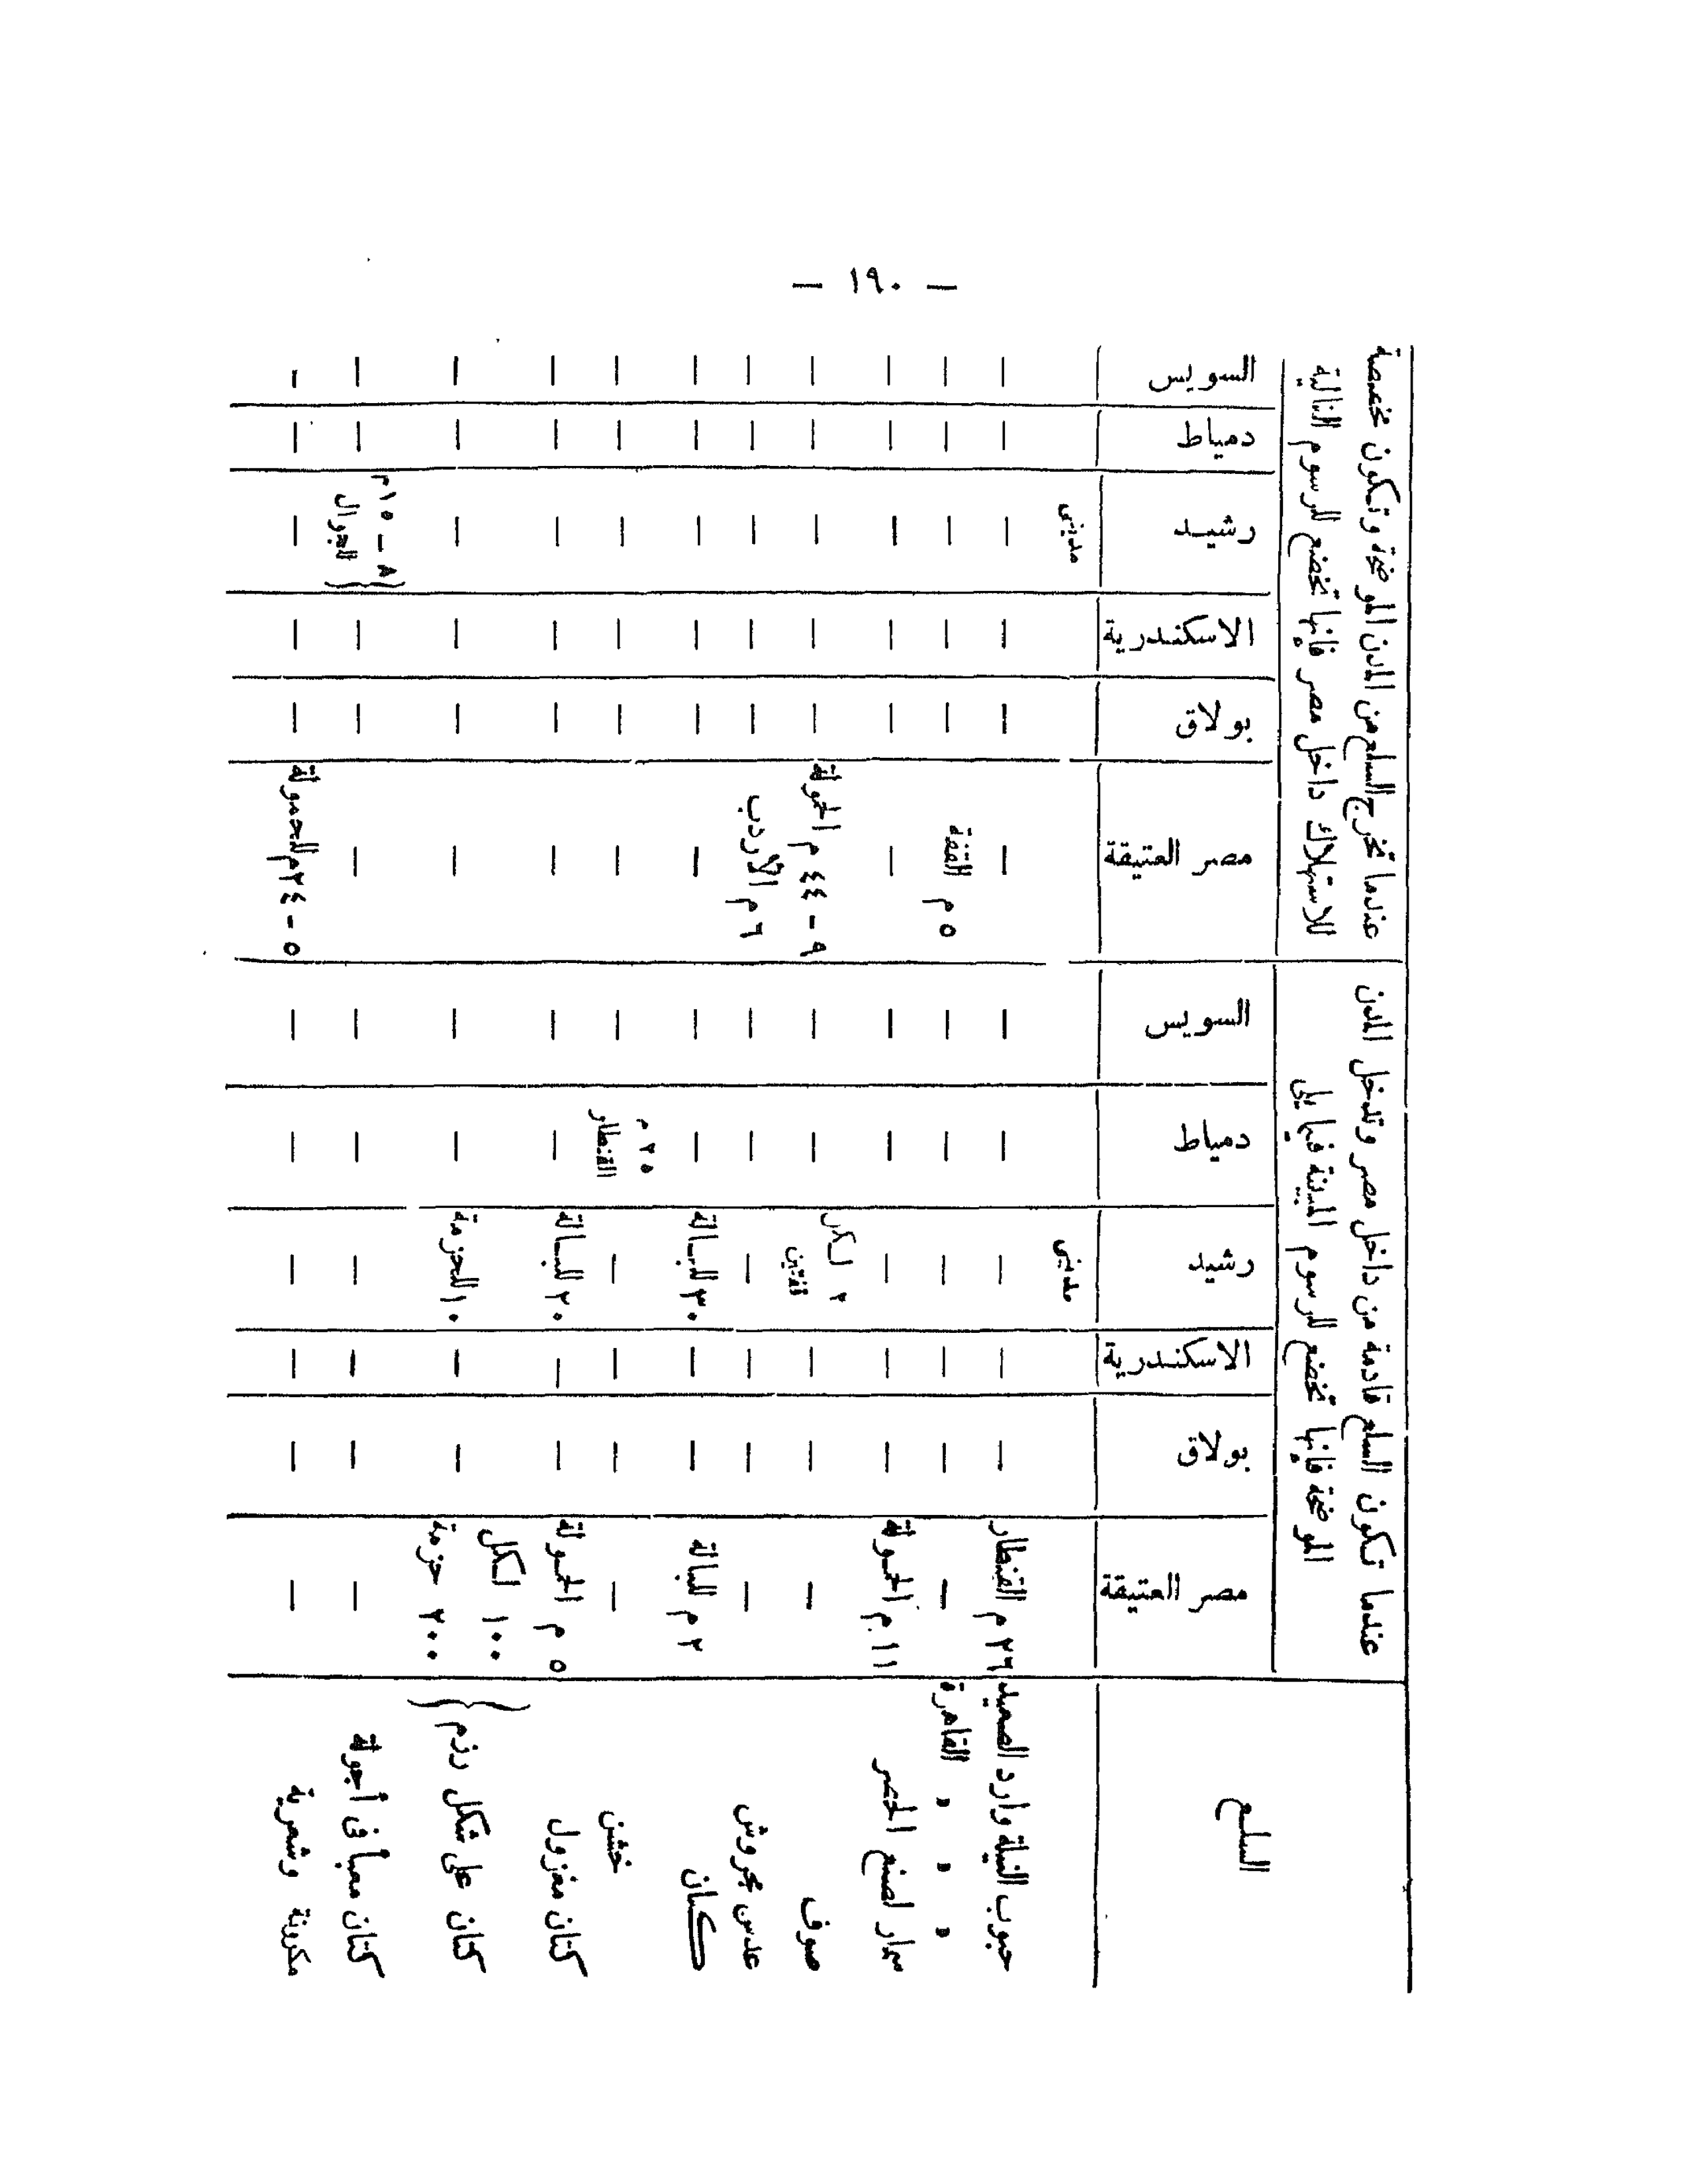 — ١٩٠ —
عندما تكون السلع قادمة من داخل مصر وتدخل المدن
الموضحة فإنها تخضع للرسوم المبينة فيما يلى
عندما تخرج السلع من المدن الموضحة وتكون مخصصة
للاستهلاك داخل مصر فإنها تخضع للرسوم التالية
السلع مصر العتيقة بولاق الاسكندرية رشيد دمياط السويس مصر العتيقة بولاق الاسكندرية رشيد دمياط السويس
مدينى مدينى
حبوب النيلة وارد الصعيد ٢٦ م القنطار — — — — — — — — — — —
» » » القاهرة — — — — — — ٥ م القفة — — — — —
سمار لصنع الحصر ١١ م الحمولة — — — — — — — — — — —
صوف — — — ٢ لكل قفتين — — ٩ – ٤٤ م الحمولة — — — — —
عدس مجروش — — — — — — ٦ م الأردب — — — — —
كتان ٢ م للبالة — — ٣٠ للبالة — — — — — — — —
خشن — — — — ٢٥ م القنطار — — — — — — —
كتان مغزول ٥ م الحمولة — — ٢٠ للبالة — — — — — — — —
كتان على شكل رزم } ١٠٠ لكل ٢٠٠ حزمة — — ١٠ للحزمة — — — — — — — —
كتان معبأ فى أجولة — — — — — — — — — { ٨ – ١٥ م للجوال — —
مكرونة وشعرية — — — — — — ٥ – ٢٤ م للحمولة — — — — —